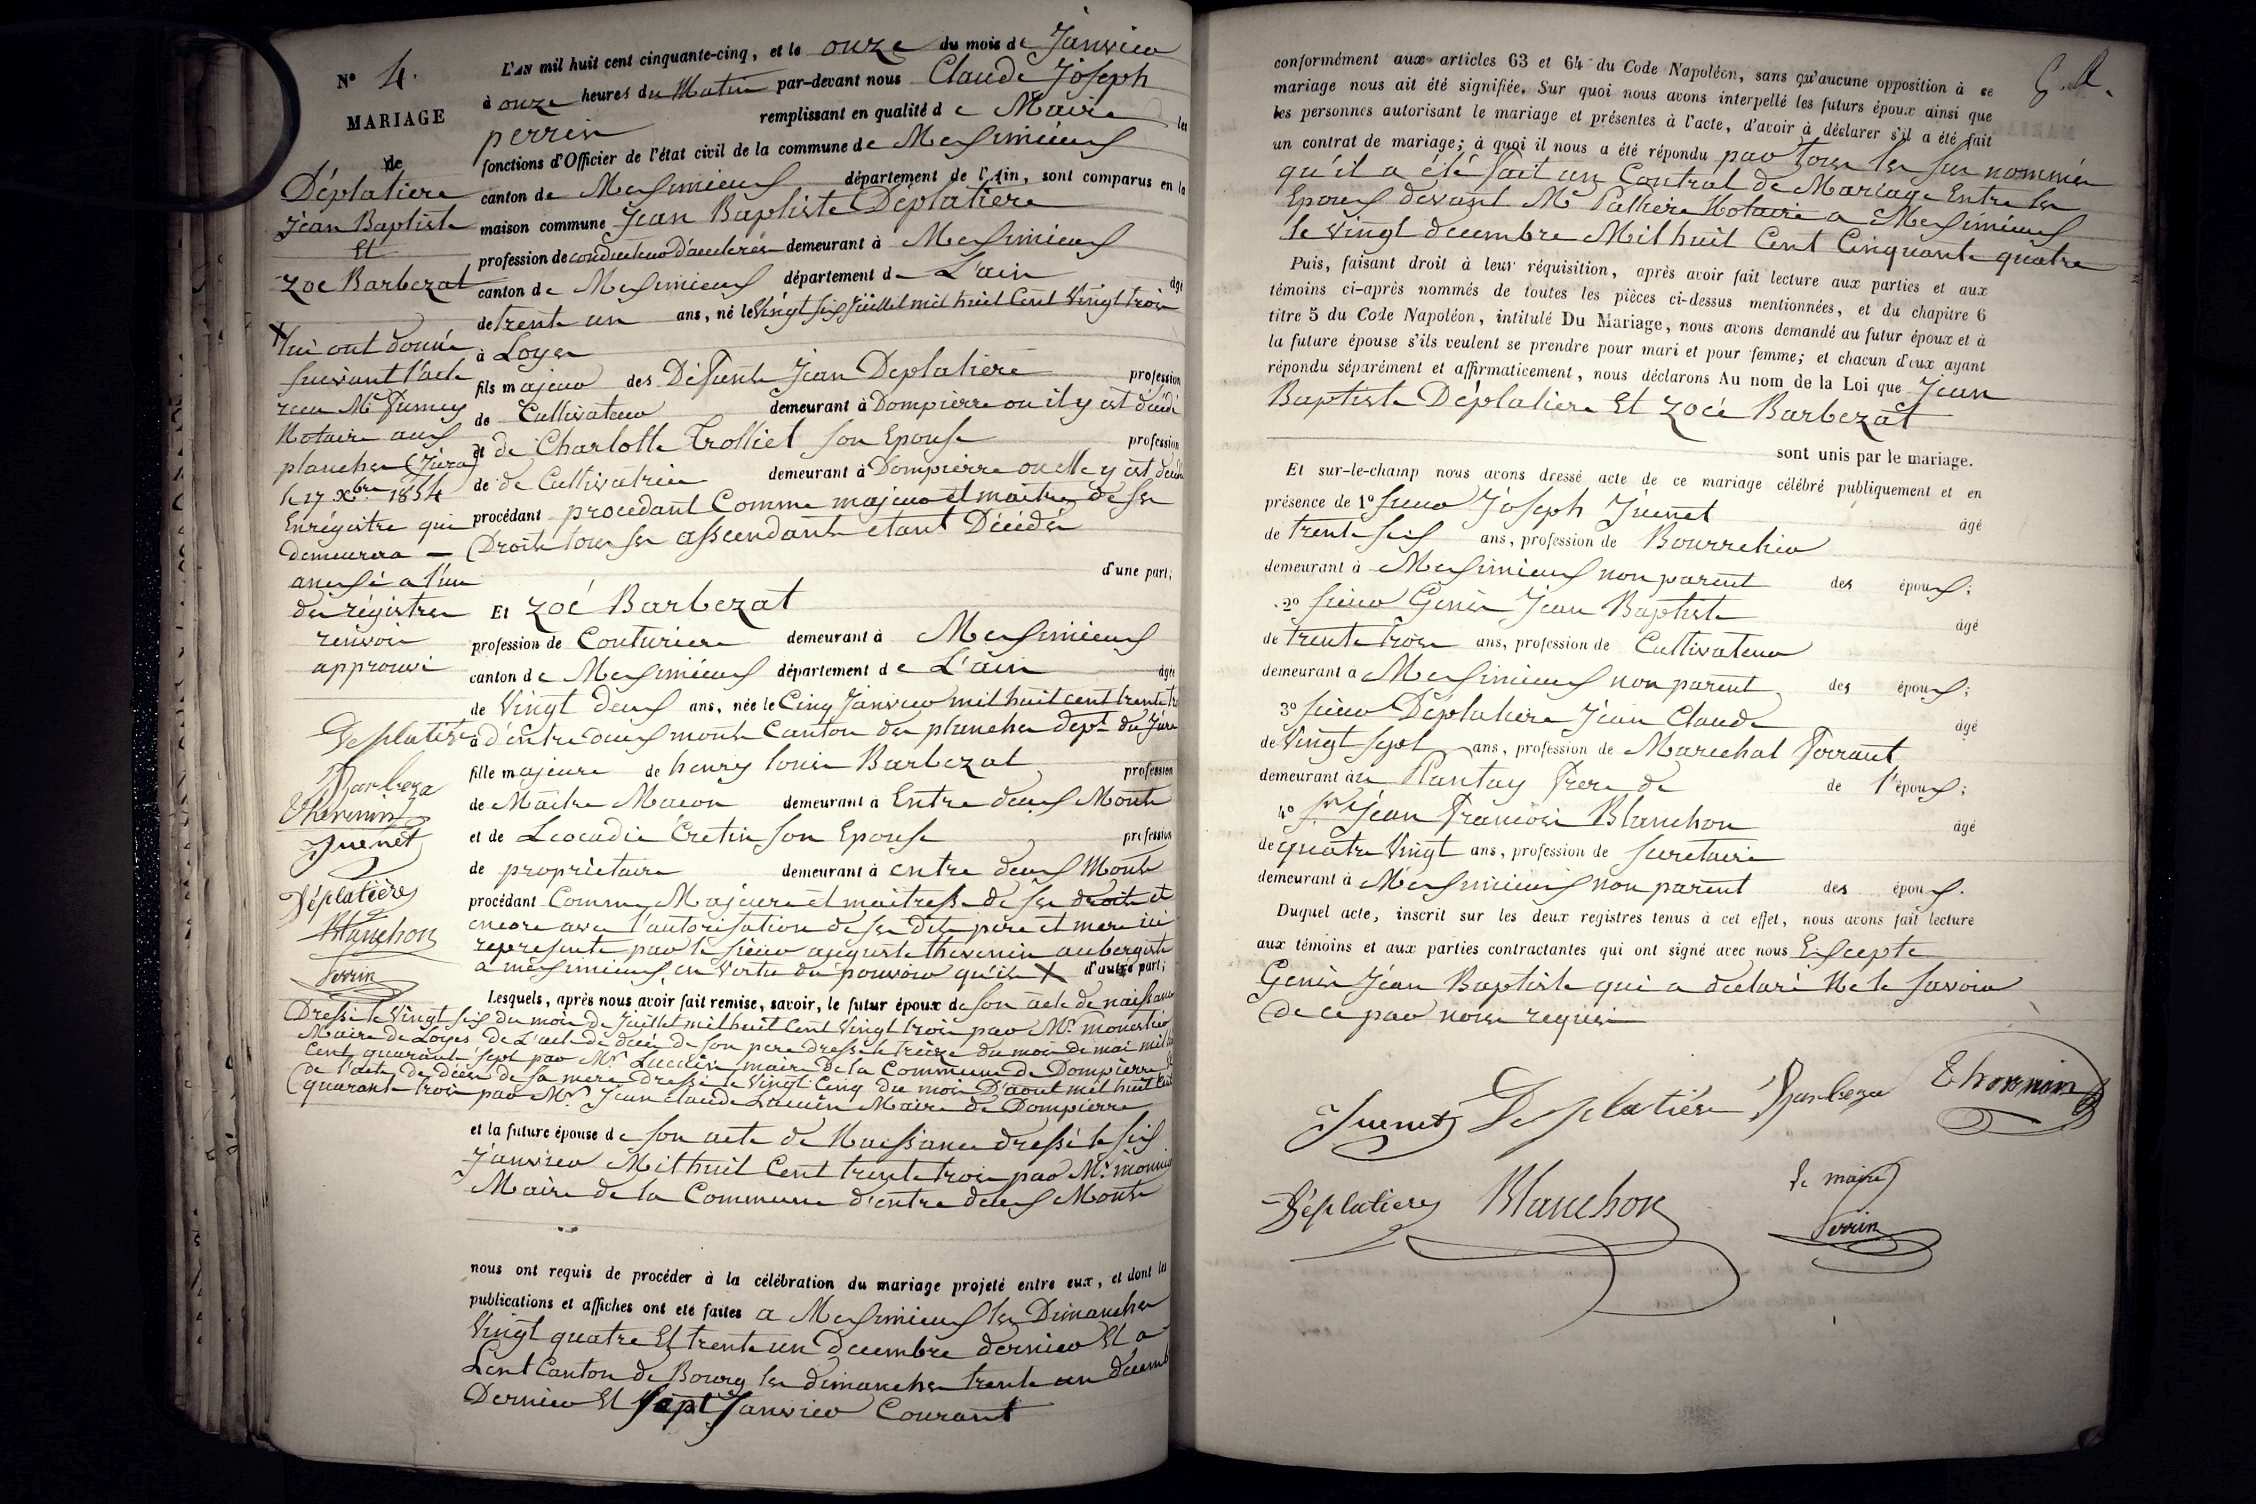 N° 4.
MARIAGE
de
Déplatiere
Jean Baptiste
Et
Zoé Barbezat
X lui ont donné
suivant l'acte
reçu Me Pumey
Notaire aux
planches (Jura)
le 17 Xbre 1854
Enrégistre qui
demeurera —
anexé a l'un
des régistres
renvoie
approuvé
Desplatière
Barbeza
Thevenin
Juenet
Déplatières
Blanchon
Perrin
L'AN mil huit cent cinquante-cinq, et le onze du mois de Janvier
à onze heures du Matin par-devant nous Claude Joseph
perrin remplissant en qualité de Maire les
fonctions d'Officier de l'état civil de la commune de Meximieux
canton de Meximieux département de l'Ain, sont comparus en la
maison commune Jean Baptiste Déplatière
profession de conducteur d'accelerés demeurant à Meximieux
canton de Meximieux département de L'ain âgé
de trente un ans, né le Vingt six Juillet mil huit Cent Vingt trois
à Loyes
fils majeur des Défunts Jean Deplatière profession
de Cultivateur demeurant à Dompierre ou il y est décédé
et de Charlotte Trolliet son Epouse profession
de de Cultivatrice demeurant à Dompierre ou elle y est décédée
procédant procedant Comme majeur et maitre de ses
Droits tous ses assendants etant Décédés
d'une part;
Et Zoé Barbezat
profession de Couturiere demeurant à Meximieux
canton de Meximieux département de L'ain âgée
de Vingt deux ans, née le Cinq Janvier mil huit cent trente tr
à d'entre deux monts Canton des planches dept du Jura
fille majeure de henry louis Barbezat profession
de Maitre Macon demeurant à Entre deux Monts
et de Leocadie Cretin son Epouse profession
de propriètaire demeurant à entre deux Monts
procédant Comme Majeure et maitresse de ses droits et
encore avec l'autorisation de ses dits pere et mere ici
représenté par le sieur auguste thevenin aubergiste
a méximieux en Vertu du pouvoir qu'ils X d'autre part;
Lesquels, après nous avoir fait remise, savoir, le futur époux de son acte de naissance
Dressé le Vingt six du mois de Juillet mil huit Cent Vingt trois par Mr. monestier
Maire de Loyes de L'acte de décès de son pere dressé le treize du mois de mai mil
Cent quarante sept par Mr maire de la Commune de Dompierre
de l'acte de décès de sa mere dressé le Vingt Cinq du mois D'aout mil huit Cent
quarante trois par Mr. Jean Claude Maire de Dompierre
et la future épouse de son acte de Naissance dressé le six
Janvier Mil huit Cent trente trois par Mr. monnier
Maire de la Commune d'entre deux Monts
nous ont requis de procéder à la célébration du mariage projeté entre eux, et dont les
publications et affiches ont été faites a Meximieux les Dimanches
Vingt quatre Et trente un decembre dernier Et a
Lent Canton de Bourg les dimanches trente un décemb
Dernier Et Sept Janvier Courant
conformément aux articles 63 et 64 du Code Napoléon, sans qu'aucune opposition à ce
mariage nous ait été signifiée. Sur quoi nous avons interpellé les futurs époux ainsi que
les personnes autorisant le mariage et présentes à l'acte, d'avoir à déclarer s'il a été fait
un contrat de mariage; à quoi il nous a été répondu par tous les sus nommés
qu'il a été fait un Contrat de Mariage Entre les
Epoux devant Me Notaire a Meximieux
le Vingt decembre Mil huit Cent Cinquante quatre
Puis, faisant droit à leur réquisition, après avoir fait lecture aux parties et aux
témoins ci-après nommés de toutes les pièces ci-dessus mentionnées, et du chapitre 6
titre 5 du Code Napoléon, intitulé Du Mariage, nous avons demandé au futur époux et à
la future épouse s'ils veulent se prendre pour mari et pour femme; et chacun d'eux ayant
répondu séparément et affirmaticement, nous déclarons Au nom de la Loi que Jean
Baptiste Déplatiere Et Zoé Barbezat
sont unis par le mariage.
Et sur-le-champ nous avons dressé acte de ce mariage célébré publiquement et en
présence de 1° sieur Joseph Juenet âgé
de trente six ans, profession de Bourrelier
demeurant à Meximieux non parent des époux;
2° sieur Genis Jean Baptiste âgé
de trente trois ans, profession de Cultivateur
demeurant à Meximieux non parent des époux;
3° sieur Déplatiere Jean Claude âgé
de Vingt sept ans, profession de Marechal Ferrant
demeurant à Plantay Frere de de l'époux;
4° sr Jean François Blanchon âgé
de quatre Vingt ans, profession de secretaire
demeurant à Meximieux non parent des époux.
Duquel acte, inscrit sur les deux registres tenus à cet effet, nous avons fait lecture
aux témoins et aux parties contractantes qui ont signé avec nous Excepte
Genis Jean Baptiste qui a déclaré Ne le savoir
de ce par nous requis
Juenet Desplatière Barbeza Thevenin
Déplatieres Blanchon
le maire
Perrin